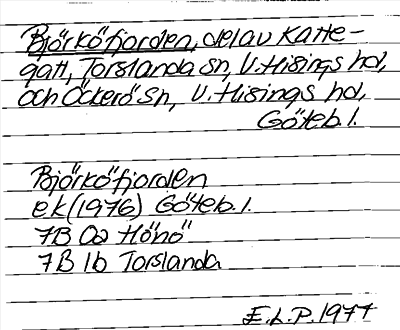 Björköfjorden, del av Katte-
gatt, Torslanda sn, V. Hisings hd,
och Öckerö sn, V. Hisings hd,
Göteb. l.
Björköfjorden
ek (1976) Göteb. l.
7B 0a Hönö
7B 1b Torslanda
E.L.P. 1977